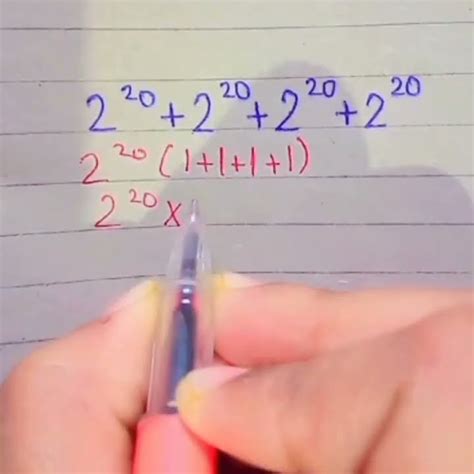 2²⁰ + 2²⁰ + 2²⁰ + 2²⁰
2²⁰ (1+1+1+1)
2²⁰ x